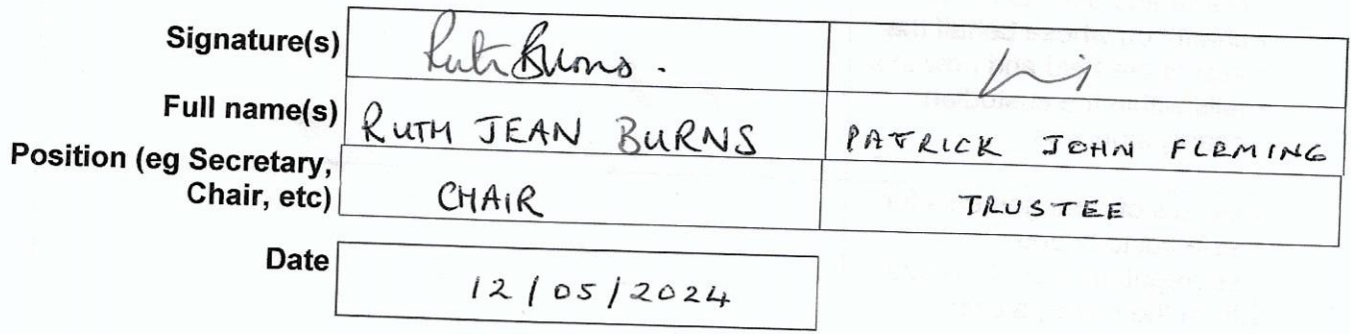 Signature(s) Ruth Burns.
Full name(s) RUTH JEAN BURNS PATRICK JOHN FLEMING
Position (eg Secretary,
Chair, etc) CHAIR TRUSTEE
Date 12/05/2024